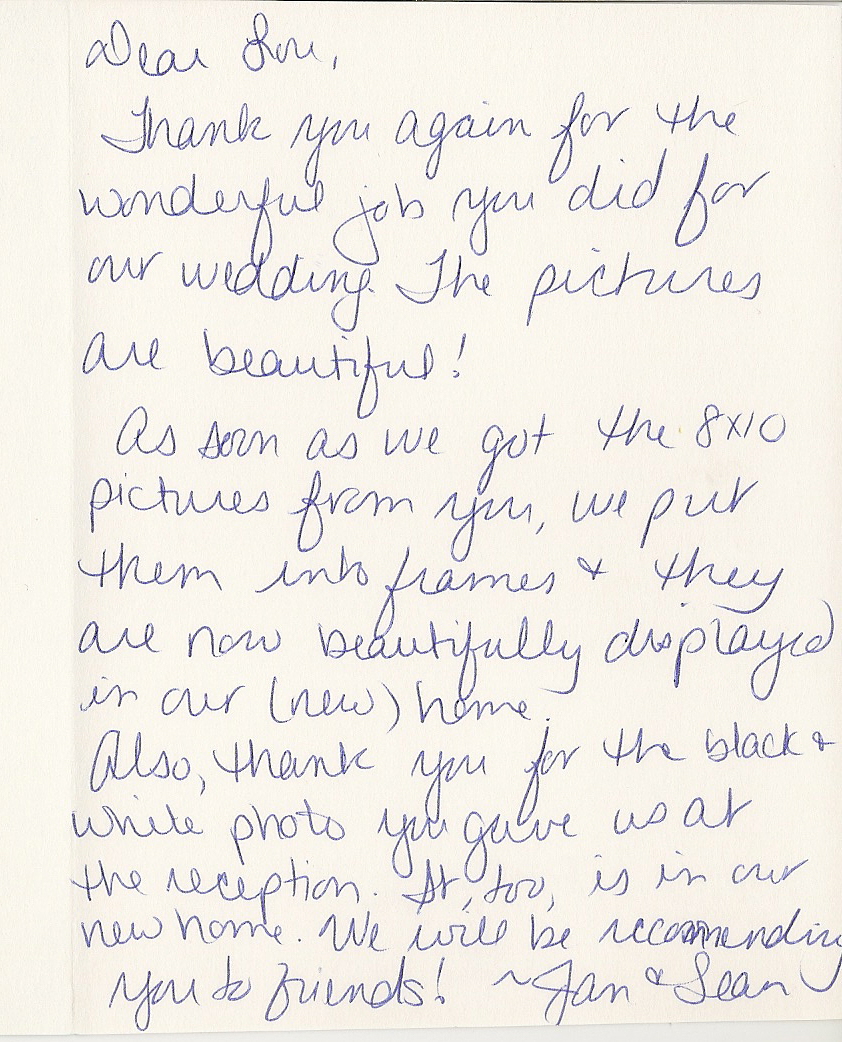 Dear Lou,
Thank you again for the
wonderful job you did for
our wedding. The pictures
are beautiful!
As soon as we got the 8x10
pictures from you, we put
them into frames & they
are now beautifully displayed
in our (new) home.
Also, thank you for the black &
white photo you gave us at
the reception. It, too, is in our
new home. We will be recommending
you to friends! ~Jan & Sean